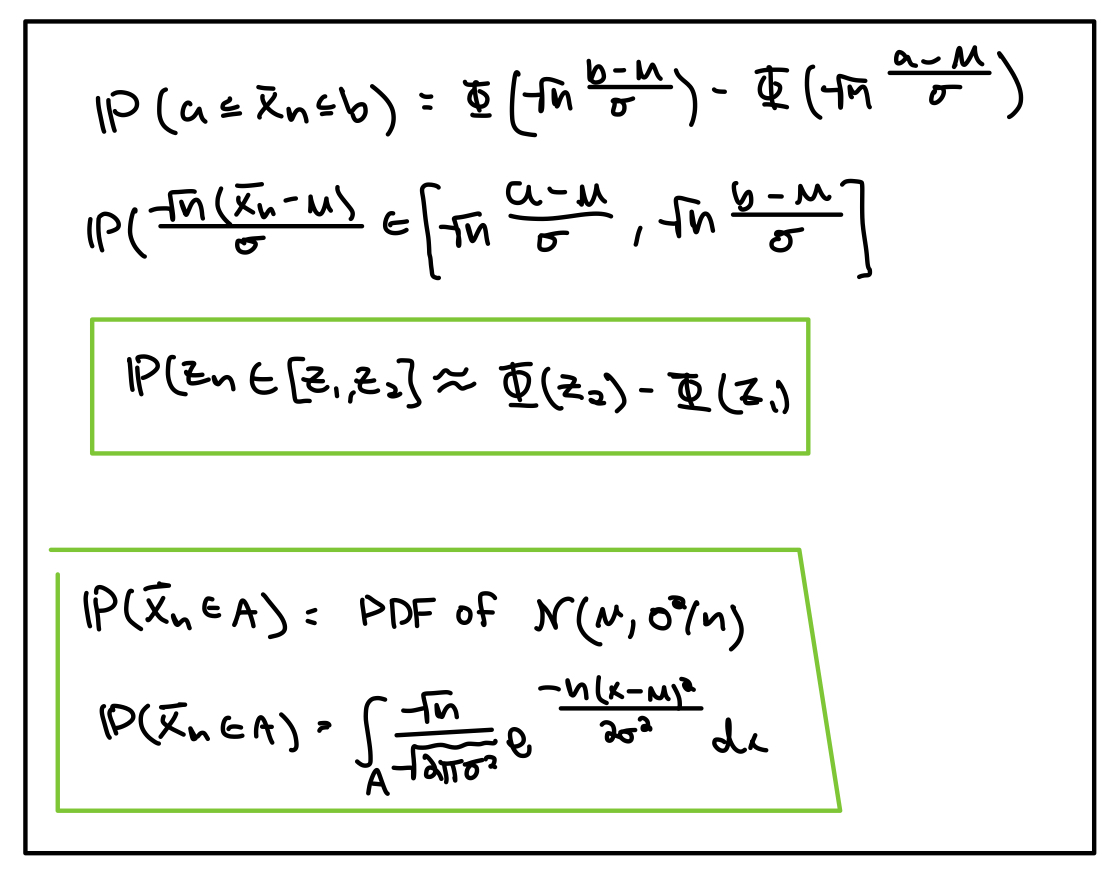 ℙ(a ≤ X̄n ≤ b) = Φ(√n (b-μ)/σ) - Φ(√n (a-μ)/σ)
ℙ(√n(X̄n-μ)/σ ∈ [√n (a-μ)/σ, √n (b-μ)/σ]
ℙ(Zn ∈ [Z₁,Z₂] ≈ Φ(Z₂) - Φ(Z₁)
ℙ(X̄n ∈ A) = PDF of N(μ, σ²/n)
ℙ(X̄n ∈ A) = ∫_A √n/√(2πσ²) e^(-n(x-μ)²/2σ²) dx